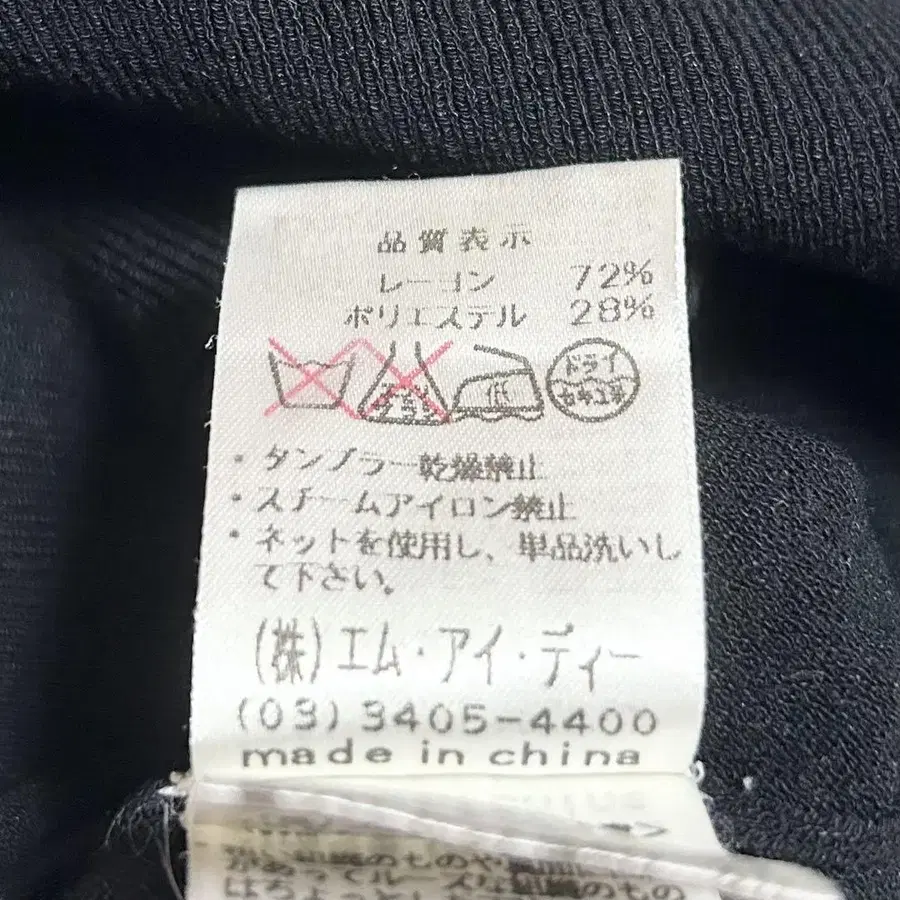 品質表示
レーヨン 72%
ポリエステル 28%
エンソ サラシ
中
ドライ
セキユ系
・タンブラー乾燥禁止
・スチームアイロン禁止
・ネットを使用し、単品洗いし
て下さい。
(株)エム・アイ・ディー
(03)3405-4400
made in china
組織のものや
あってルーズな組織のもの